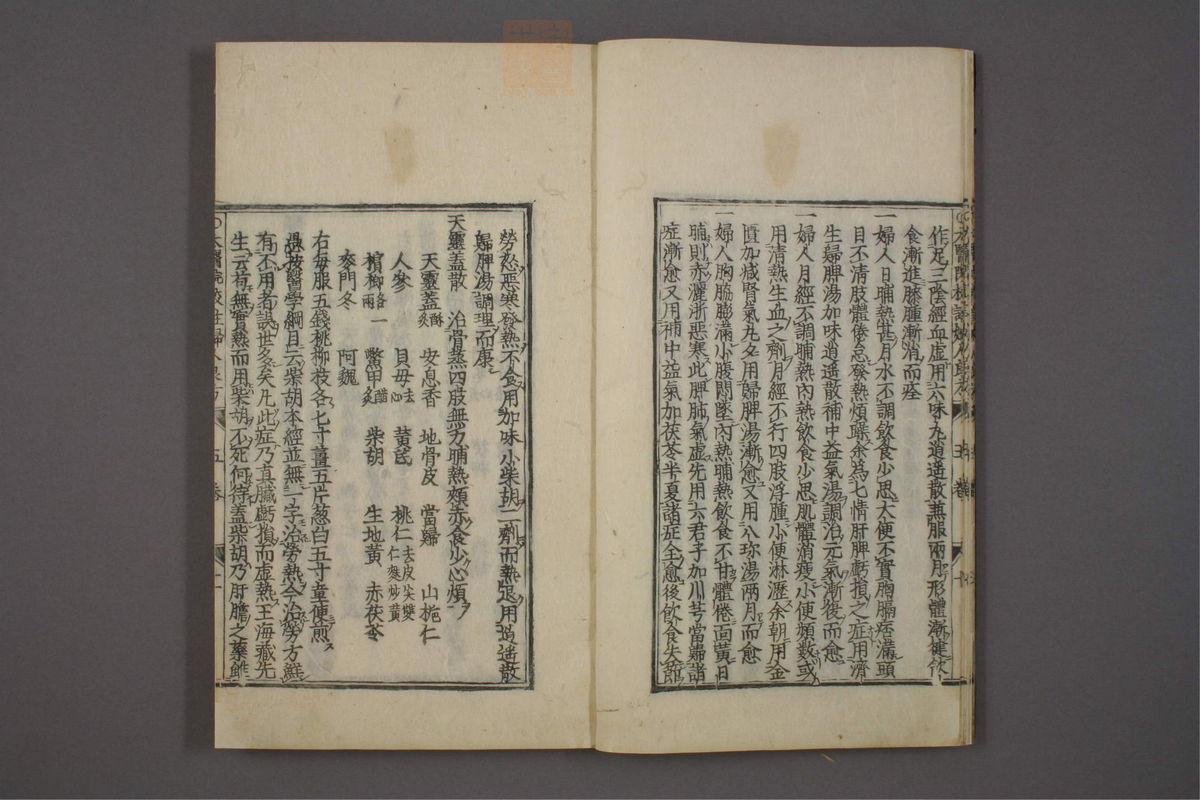 作足三陰經血虚用六味丸逍遥散兼服兩月形體漸健飲
食漸進膝腫漸消而痊
一婦人日晡熱甚月水不調飲食少思大便不實胸膈痞滿頭
目不清肢體倦怠發熱煩躁余為七情肝脾虧損之症用濟
生歸脾湯加味逍遥散補中益氣湯調治元氣漸復而愈
一婦人月經不調晡熱内熱飲食少思肌體消瘦小便頻數或
用清熱生血之劑月經不行四肢浮腫小便淋瀝余朝用金
匱加减腎氣丸夕用歸脾湯漸愈又用八珎湯兩月而愈
一婦人胸脇膨滿小腹悶墜内熱晡熱飲食不甘體倦面黄日
晡則赤灑淅惡寒此脾肺氣虚先用六君子加川芎當歸諸
症漸愈又用補中益氣加茯苓半夏諸症全愈後飲食失節
勞怒惡寒發熱不食用加味小柴胡二劑而熱退用逍遥散
歸脾湯調理而康
天靈蓋散 治骨蒸四肢無力晡熱頰赤食少心煩
天靈蓋酥炙 安息香 地骨皮 當歸 山梔仁
人參 貝母去心 黄芪 桃仁去皮尖雙仁麩炒黄
檳榔 鱉甲醋炙 柴胡 生地黄 赤茯苓
麥門冬 阿魏
右每服五錢桃柳枝各七寸薑五片葱白五寸童便煎
愚按醫學綱目云柴胡本經並無一字治勞熱今治勞方鮮
有不用者誤世多矣凡此症乃真臟虧損而虚熱王海藏先
生云有無實熱而用柴胡不死何待蓋柴胡乃肝膽之藥雖